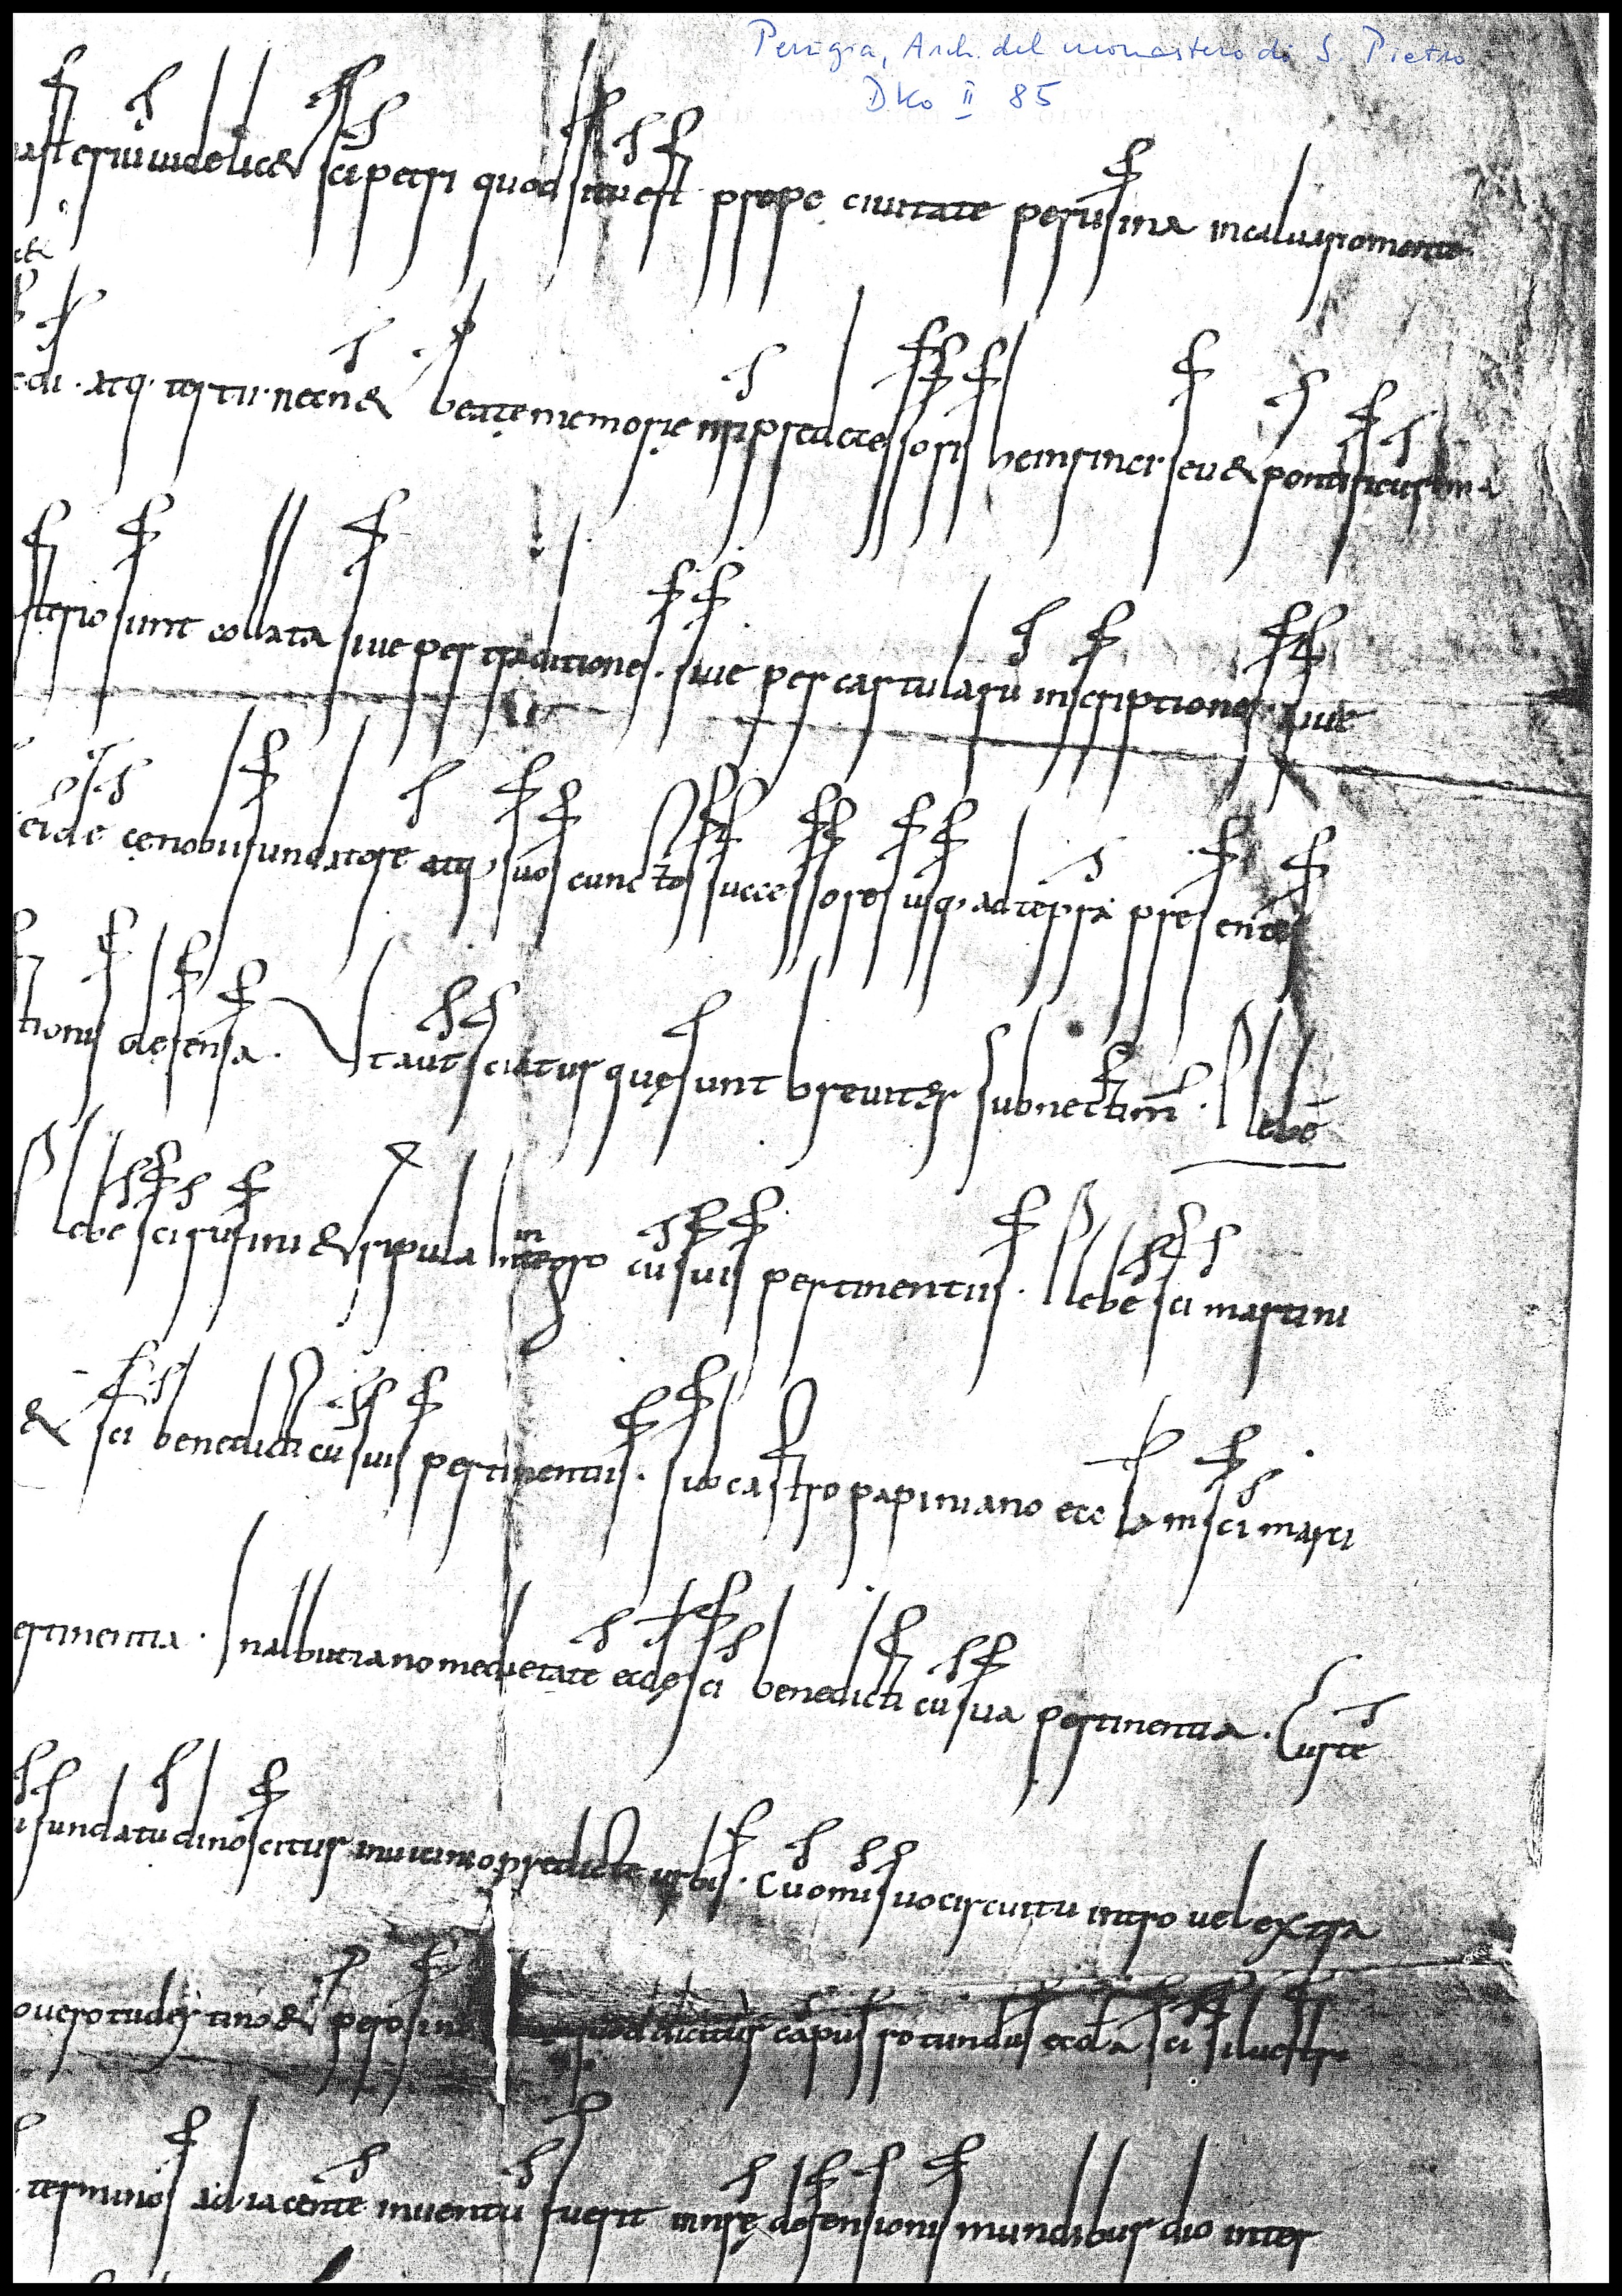 Perugia, Arch. del monastero di S. Pietro
DKo II 85
asterii videlicet sci petri quod situ est prope civitate perusina in calvario monte
&
di · atq · tortu · necn & beate memorie nri predecessori heinrinci seu & pontificu roma
sterio sunt collata sive per traditiones · sive per cartularu inscriptiones sive
eide cenobii fundatore atq suos cunctos successores usq ad tepra presentes
tionis defensa · Ut aut sciatur que sunt breviter subnectim · Plebe
Plebe sci rufini & ripula integro in cu suis pertinentiis · Plebe sci martini
& sci benedicti cu suis pertinentiis · Sub castro papiniano eccla in sci marci
ertinentia · In albutiano medietate eccle sci benedicti cu sua pertinentia · Curte
i fundatu dinoscitur in vicino predicte urbis · Cu omi suo circuitu intro vel extra
o vero tudertino & perosin quod dicitur caput rotundus eccla sci silvestri
terminos adiacente inventu fuerit in nre defensionis mundiburdio inter